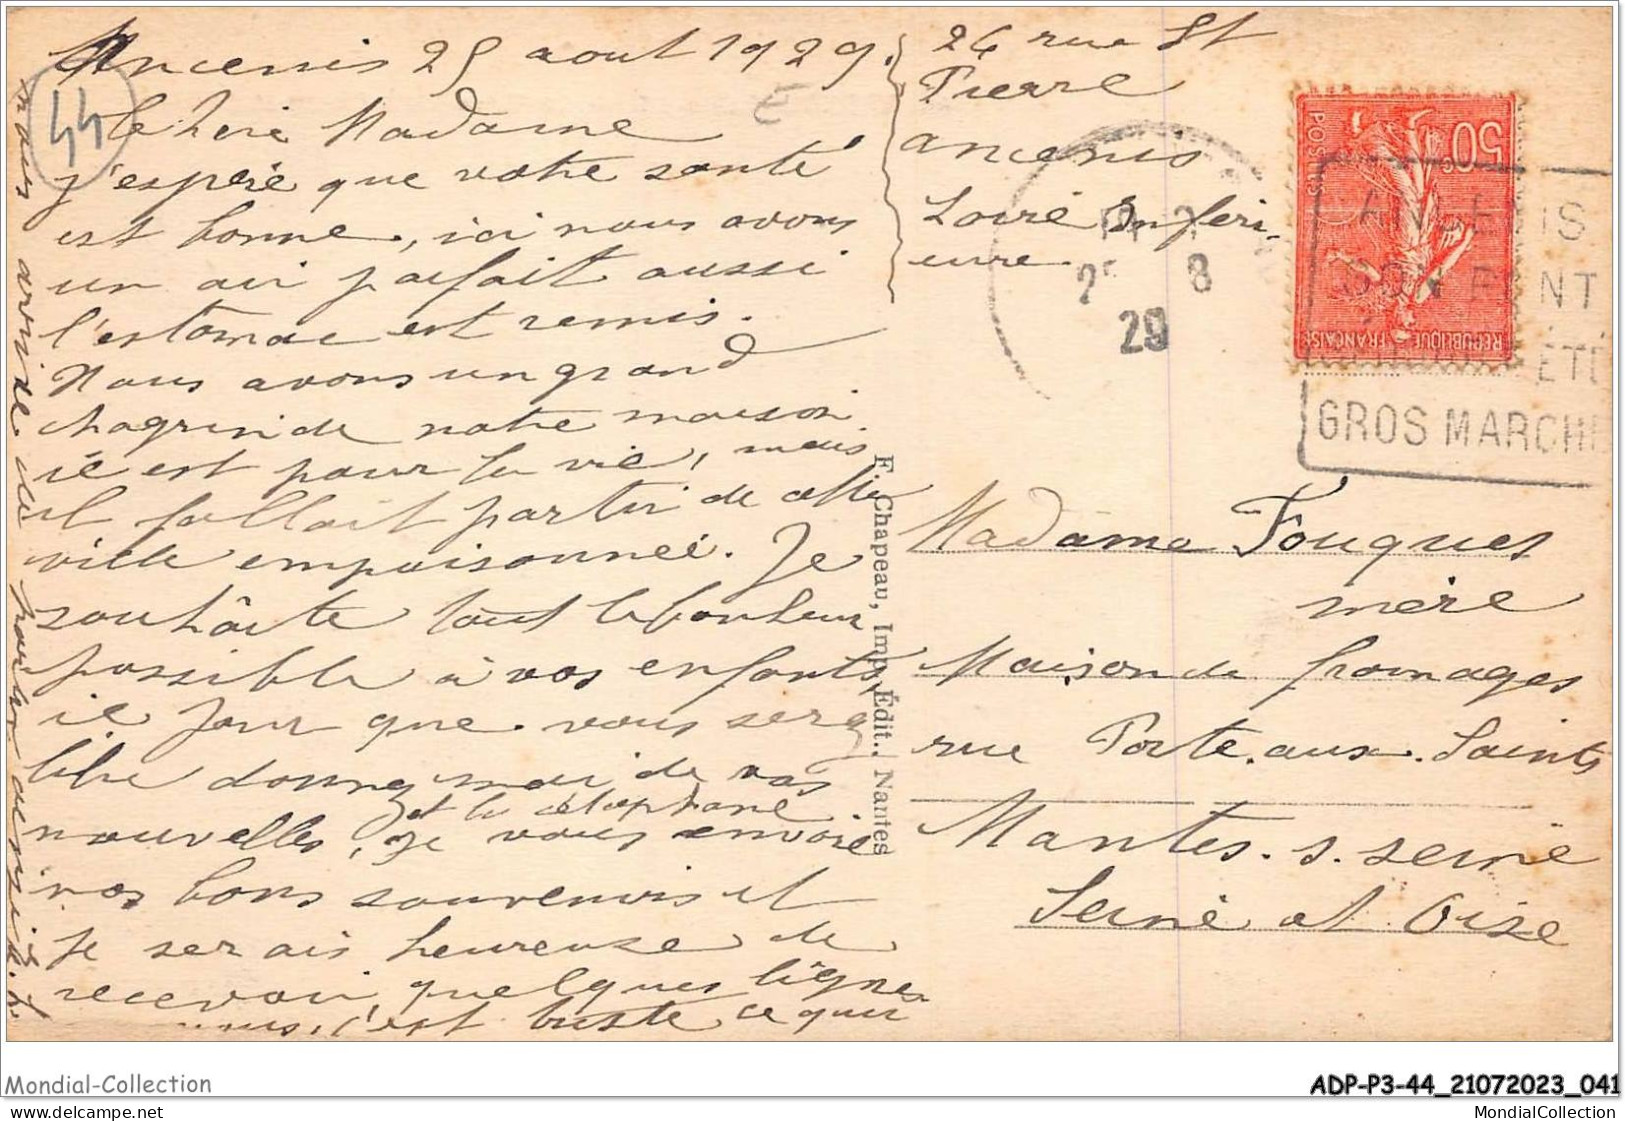 Ancenis 25 aout 1929.
44
Chere Madame
j'espere que votre santé
est bonne, ici nous avons
un air parfait aussi
l'estomac est remis.
Nous avons un grand
chagrin de notre maison
ic est pour la vie, mais
il fallait partir de cette
ville empoisonneé. Je
souhaite tout le bonheur
possible à vos enfants,
ic jour que vous serez
libre donnez moi de vos
et le telephone
nouvelles, Je vous envoie
nos bons souvenirs et
Je serais heureuse de
recevoir quelques lignes
c'est triste ce qui
nous arrive
26 rue St
Pierre
ancenis
Loire Inferi-
eure
F. Chapeau, Imp. Édit., Nantes
50c
POSTES
REPUBLIQUE FRANÇAISE
8
29
ANCENIS
SON PONT
ÉTÉ
GROS MARCHÉ
Madame Fouques
mère
Maison de fromages
rue Porte.aux.Saints
Mantes.s.seine
Seine et Oise
Mondial-Collection
ADP-P3-44_21072023_041
Copyright © 2023
MondialCollection